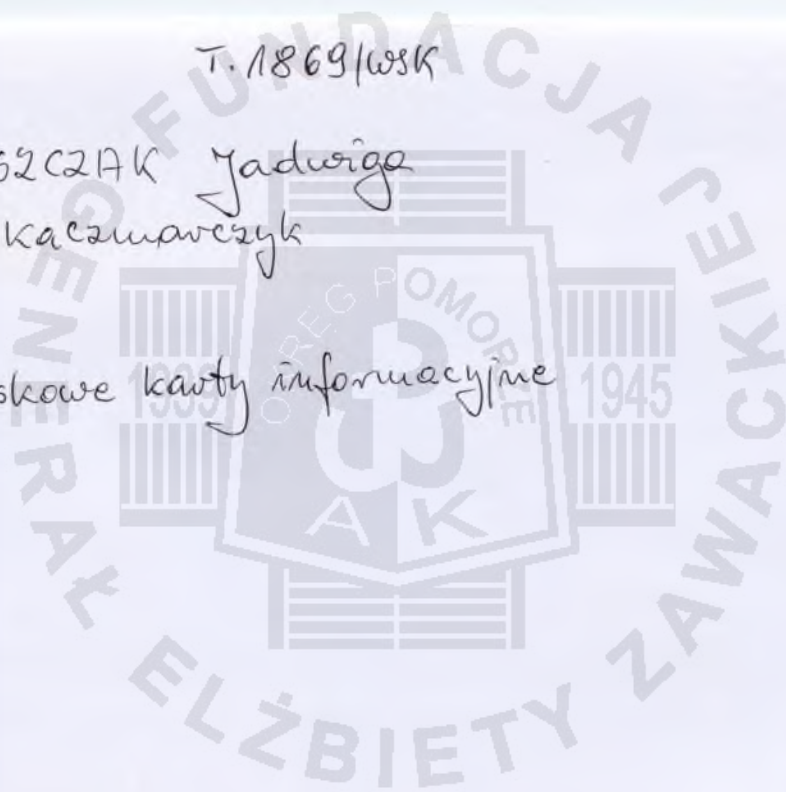 T. 1869/WSK
SZCZAK Jadwiga
Kaczmarczyk
skowe karty informacyjne
FUNDACJA GENERAŁ ELŻBIETY ZAWACKIEJ
OKRĘG POMORZE
1939 1945
AK